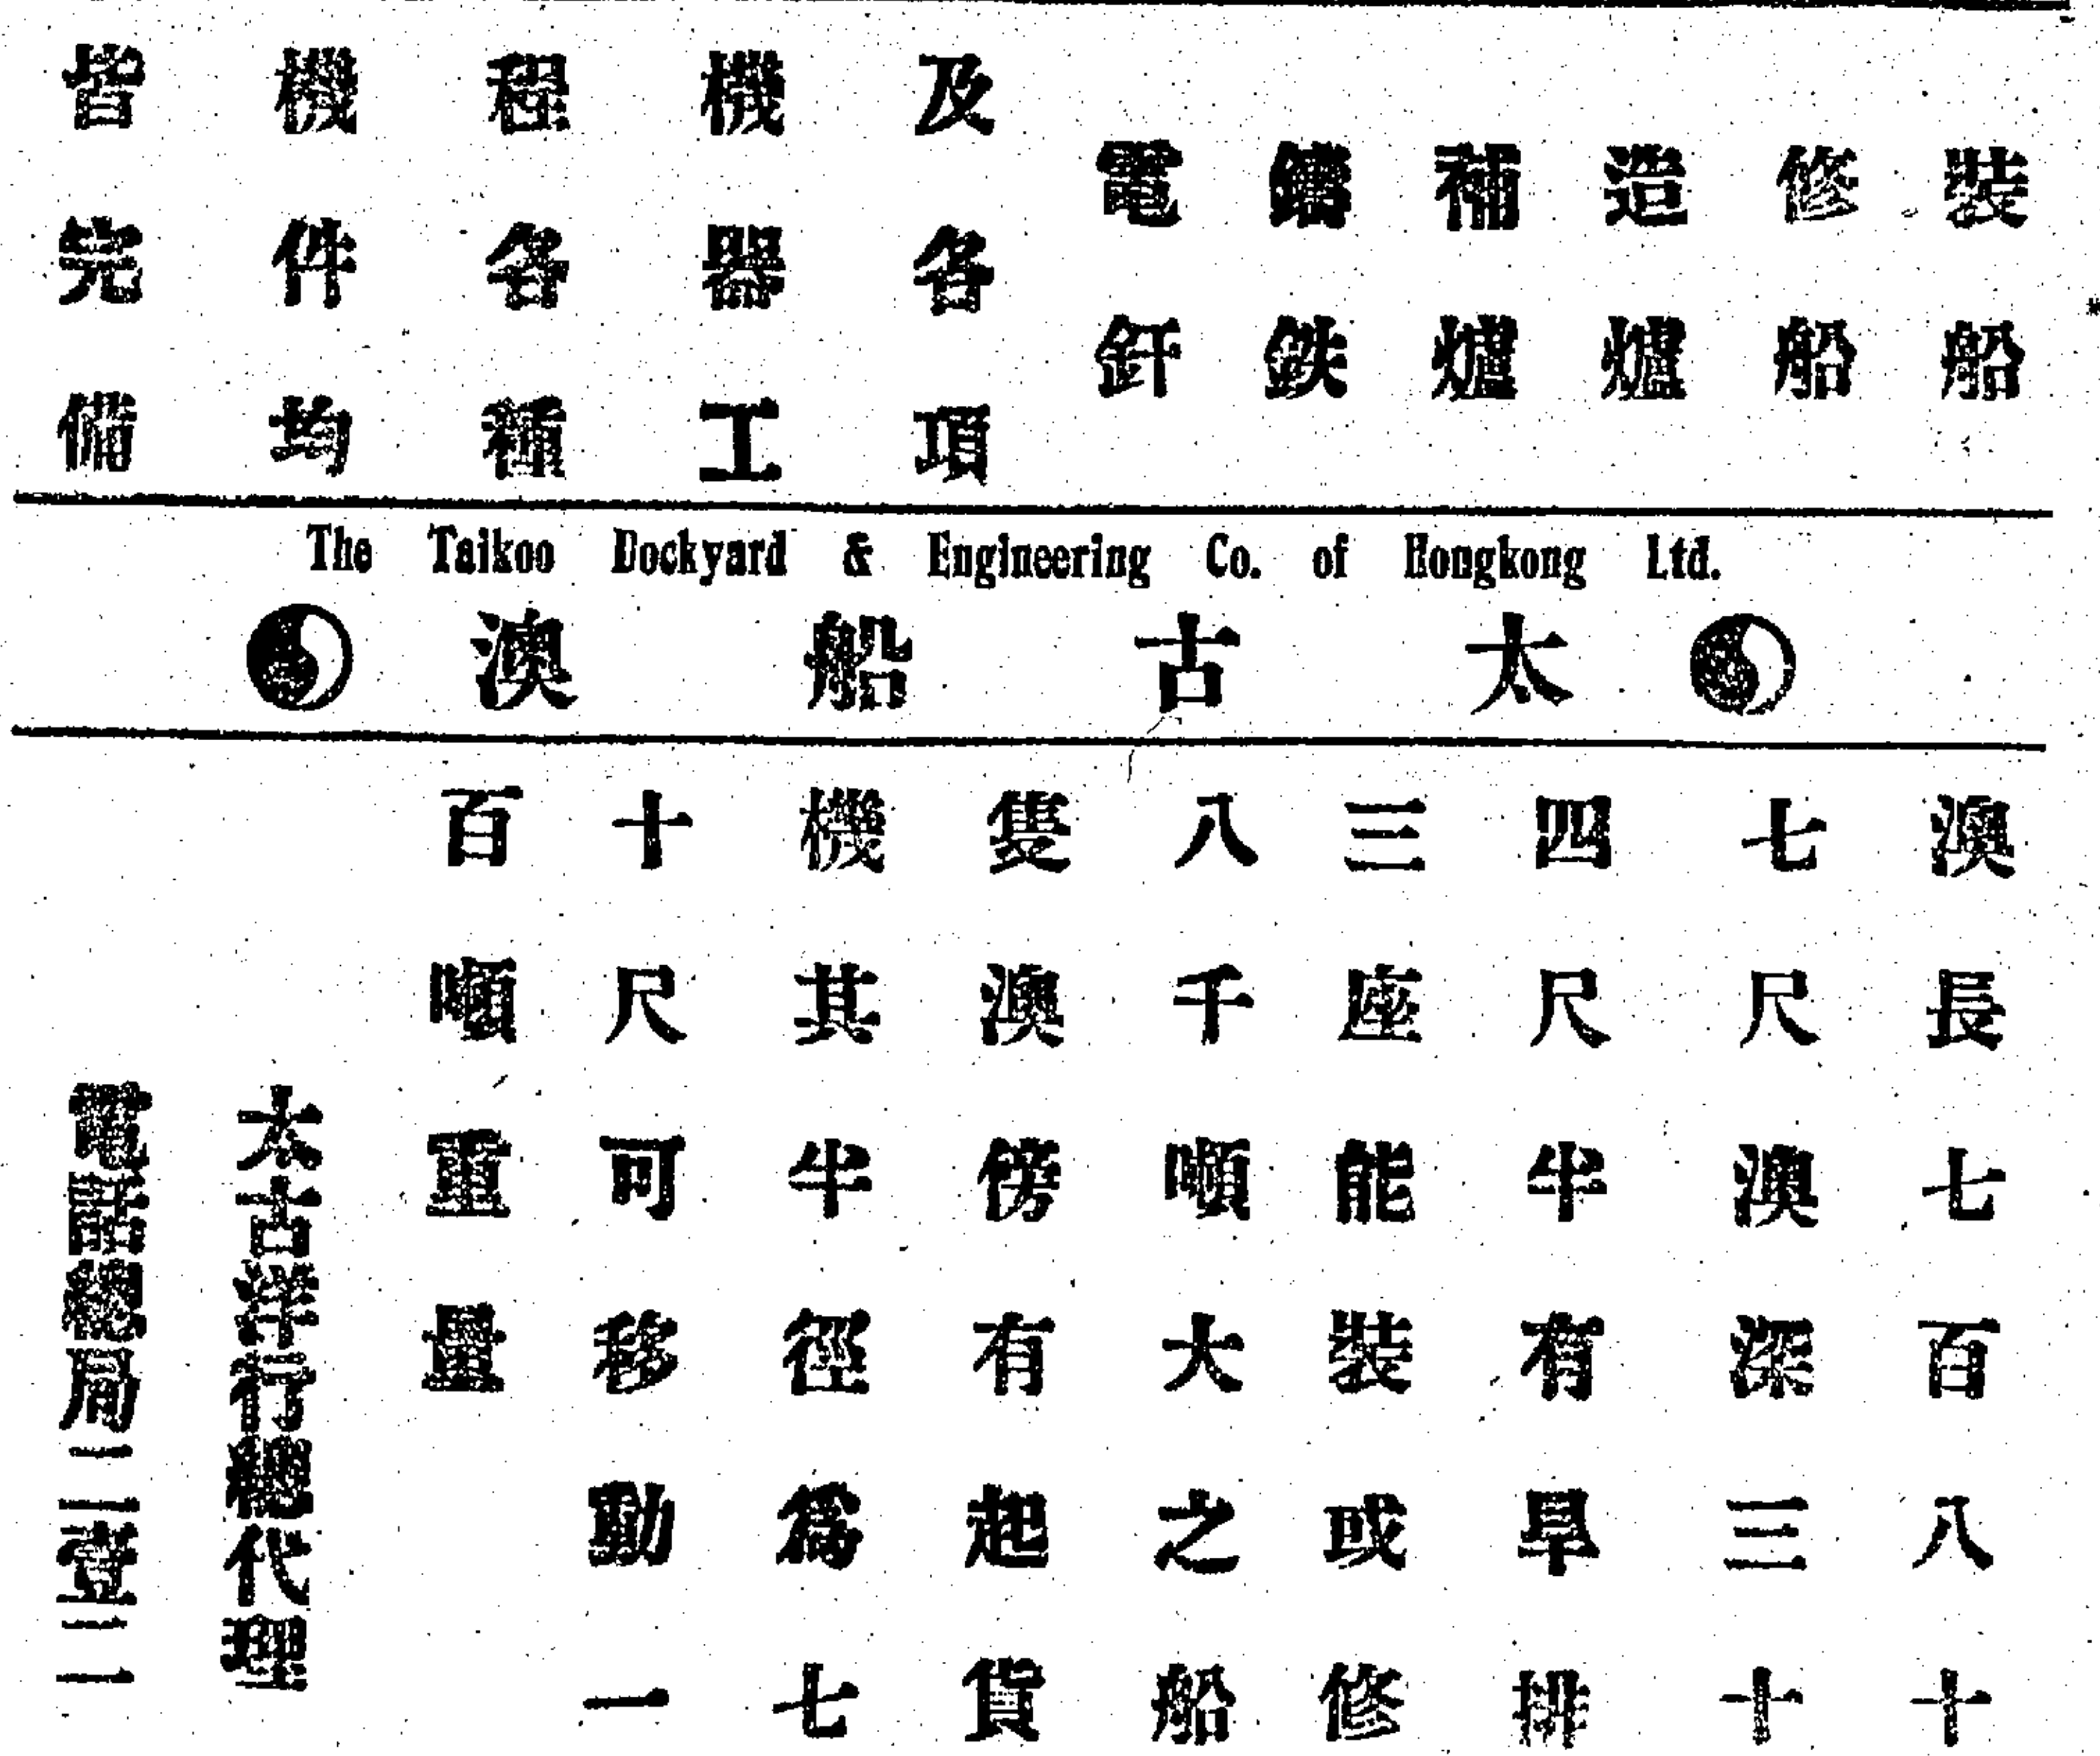 裝船
修船
造爐
補爐
鑄鉄
電釬
及各項
機器工
程各種
機件均
皆完備
The Taikoo Dockyard & Engineering Co. of Hongkong Ltd.
太古船澳
澳長七百八十
七尺澳深三十
四尺半有旱排
三座能裝或修
八千噸大之船
隻澳傍有起貨
機其半徑爲七
十尺可移動一
百噸重量
太古洋行總代理
電話總局二壹二